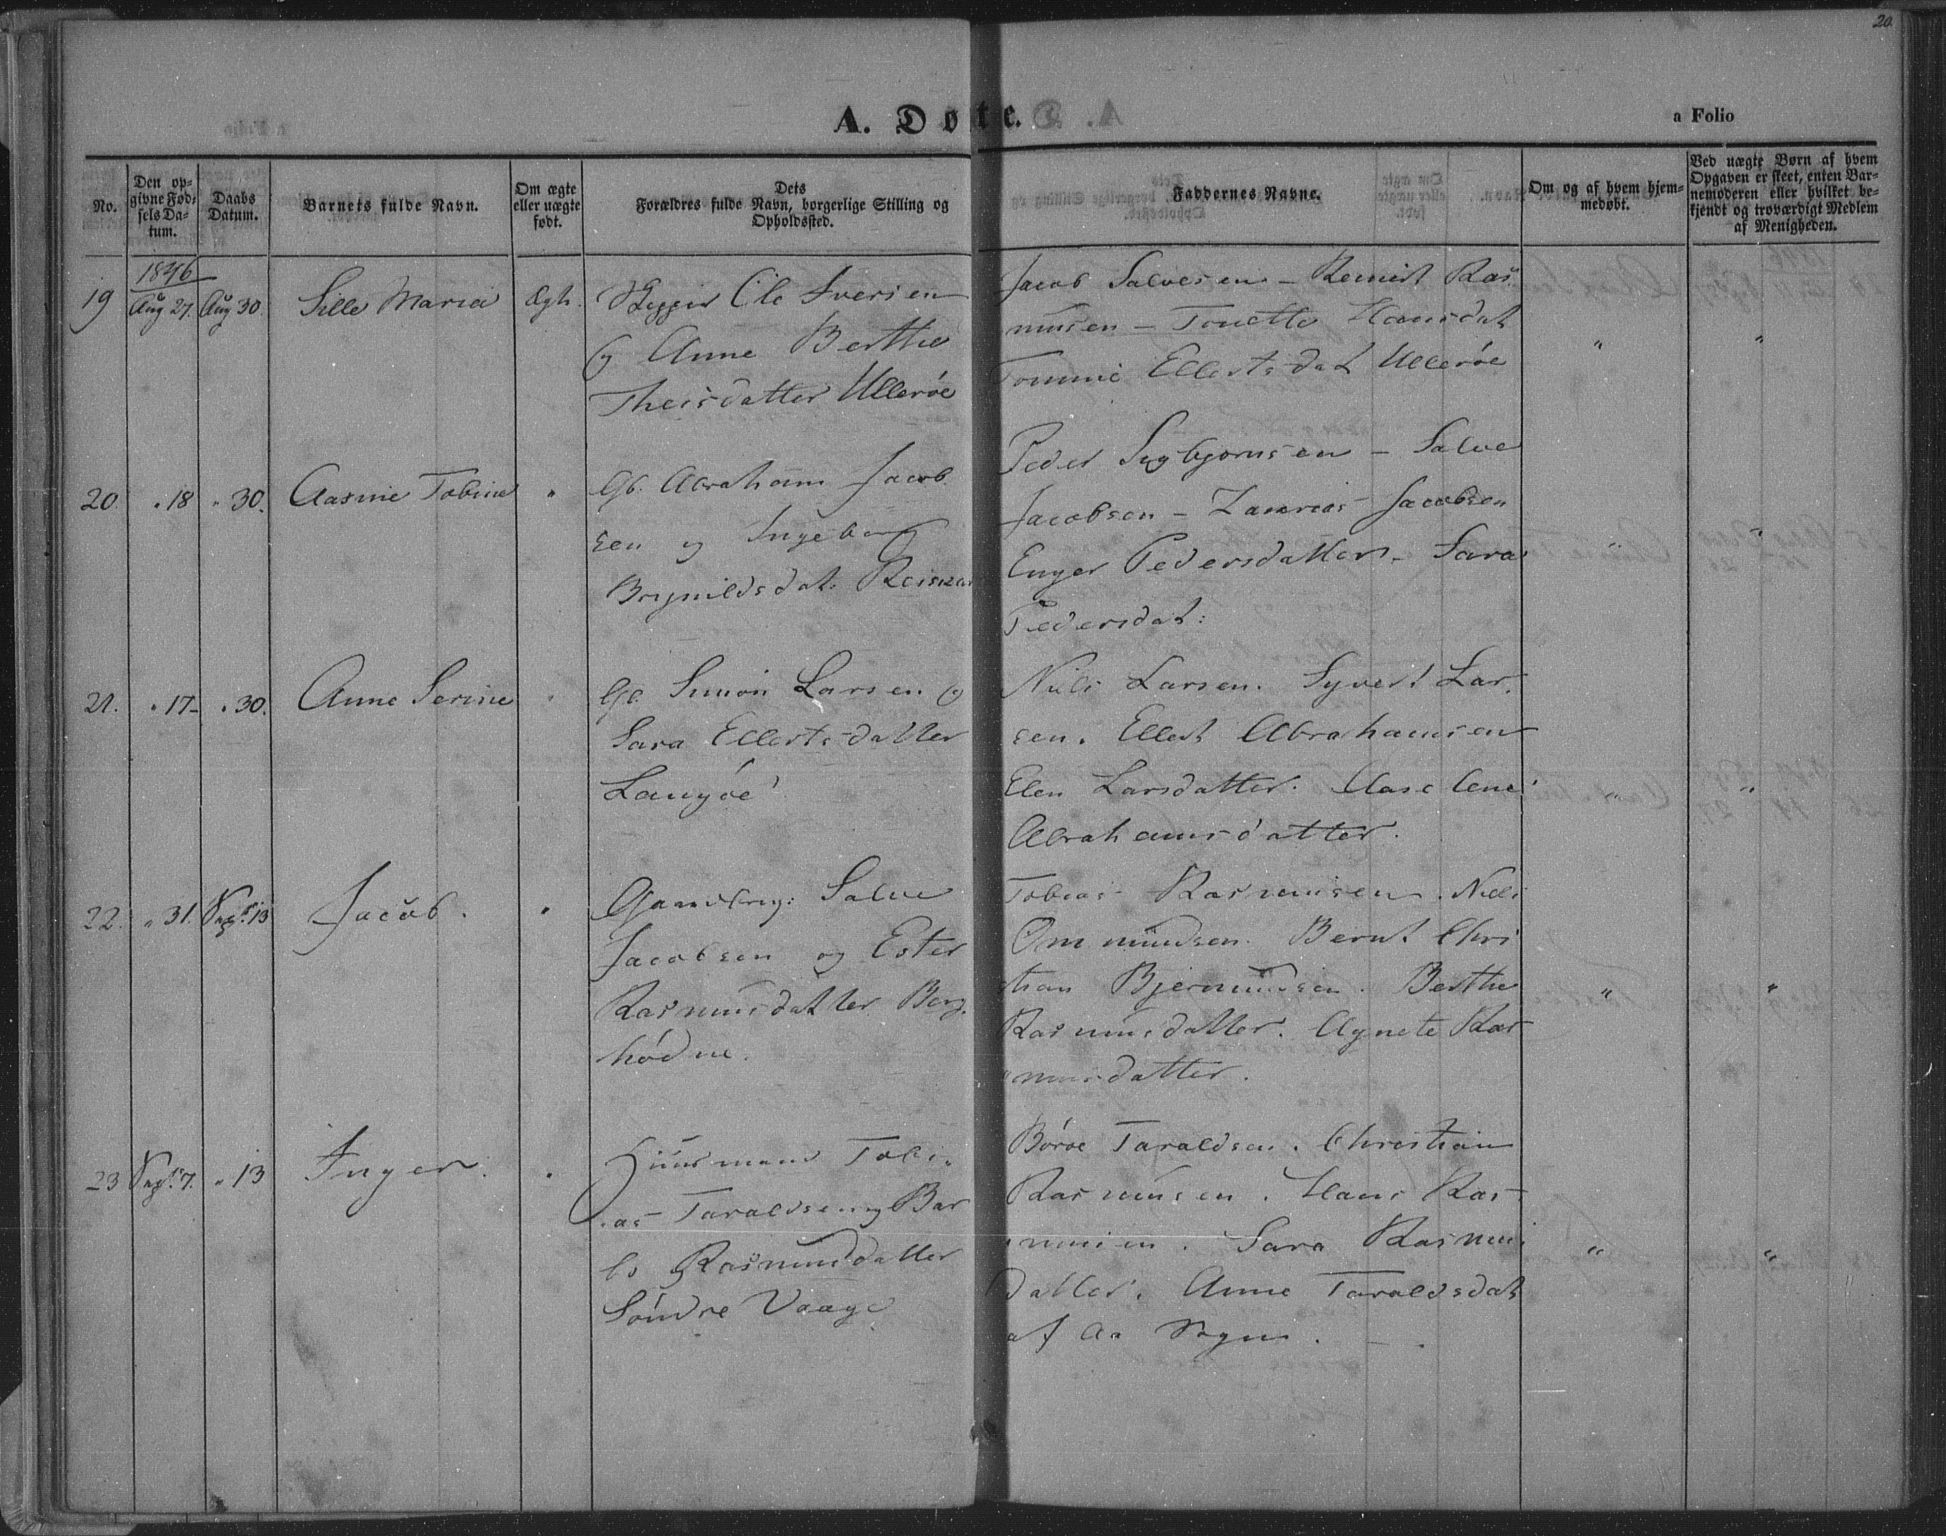 20.
A. Døbte.
a Folio
No.
Den op-
givne Fød-
sels Da-
tum.
Daabs
Datum.
Barnets fulde Navn.
Om ægte
eller uægte
født.
Dets
Forældres fulde Navn, borgerlige Stilling og
Opholdssted.
Faddernes Navne.
Om og af hvem hjem-
medøbt.
Ved uægte Børn af hvem
Opgaven er skeet, enten Bar-
nemoderen eller hvilket be-
kjendt og troværdigt Medlem
af Menigheden.
1846
19 Aug 27. Aug 30. Sille Maria Ægh. Skipper Ole Iversen
og Anne Berthe
Theisdatter Ullerøe
Jacob Salvesen - Reinert Ras
musen - Tonette Hansdat
Tomine Ellertsdat Ullerøe
" "
20. " 18 " 30. Aasine Tobine " Gb. Abraham Jacob
sen og Ingeborg
Brynildsdat.
Peder Sigbjørnsen - Salve
Jacobsen - Zakarias Jacobsen
Enger Pedersdatter - Sara
Pedersdat:
" "
21. " 17 - " 30. Anne Serine " Gb. Simon Larsen og
Sara Ellertsdatter
Langøe
Niels Larsen. Syvert Lar
sen. Ellert Abrahamsen
Elen Larsdatter. Aase Lene
Abrahamsdatter.
" "
22. " 31. Sept. 13 Jacob. " Gaardbrug: Salve
Jacobsen og Ester
Rasmusdatter Berg
hødne.
Tobias Rasmusen. Niels
Ommundsen. Bernt Chri
stian Bjermundsen. Berthe
Rasmusdatter. Agnete Ras
musdatter.
" "
23 Sept. 7. " 13 Inger. " Huusmand Tobi-
as Taraldsen og Bar
bo Rasmusdatter
Søndre Vaage
Børoe Taraldsen. Christian
Rasmusen. Hans Ras-
musen. Sara Rasmus
datter. Anne Taraldsdat
af Aa Sogn.
" "